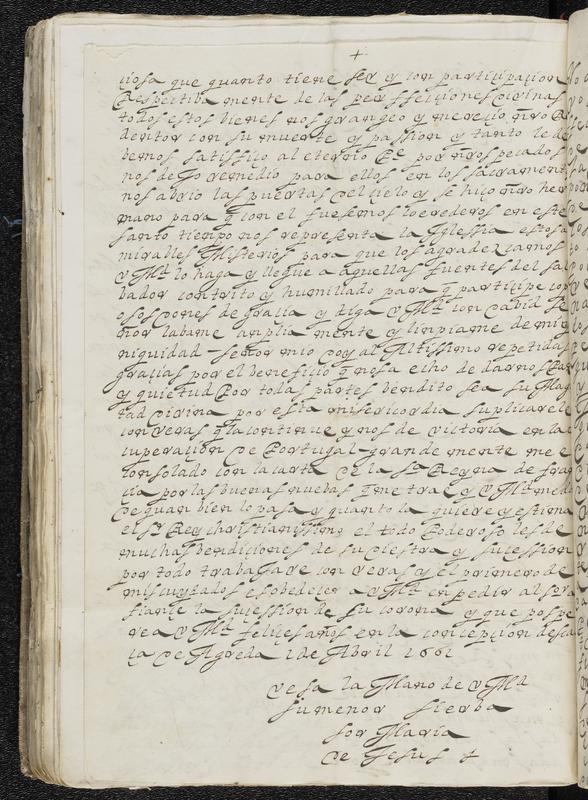 +
ciosa que quanto tiene ser y con participacion
Respectiba mente de las perffeciones divinas
todos estos bienes nos grangeo y merecio ñro R
dentor con su muerte y passion y tanto le de
bemos satisfico al eterno Pe por ñros pecados
nos dejo remedio para ellos en los sacrament
nos abrio las puertas del cielo y se hiço ñro her
mano para q con el fuesemos loerederos en este
santo tiempo nos representa la Iglessia estos a
mirables Misterios para que los agradezcamos
VMd lo haga y llegue a aquellas fuentes del sa
bador contrito y humillado para q participe co
osos dones de gracia y diga VMd con David se
ñor labame anplia mente y linpiame de mi y
niquidad señor mio doy al Altissimo repetidas
gracias por el beneficio q nos a echo de darnos Paz
y quietud Por todas partes bendito sea su Mag
tad divina por esta misericordia suplicarele
con veras q la continue y nos de victoria en la
cuperacion de Portugal grande mente me e
consolado con la carta de la Sa Reyna de fran
cia por las buenas nuebas q me trae y VMd me di
ce quan bien lo pasa y quanto la quiere y estima
el Sr Rey christianissimo el todo Poderoso les de
muchas bendiciones de su diestra y sucession
por todo trabajare con veras y el primero de
mis cuydados es obedecer a VMd en pedir al Sr
fiance la sucession de su corona y que pospe
re a VMd felices años en la concepcion desca
ça de Agreda 1 de Abril 1661
vesa la Mano de VMd
su menor sierba
sor Maria
de Jesus +